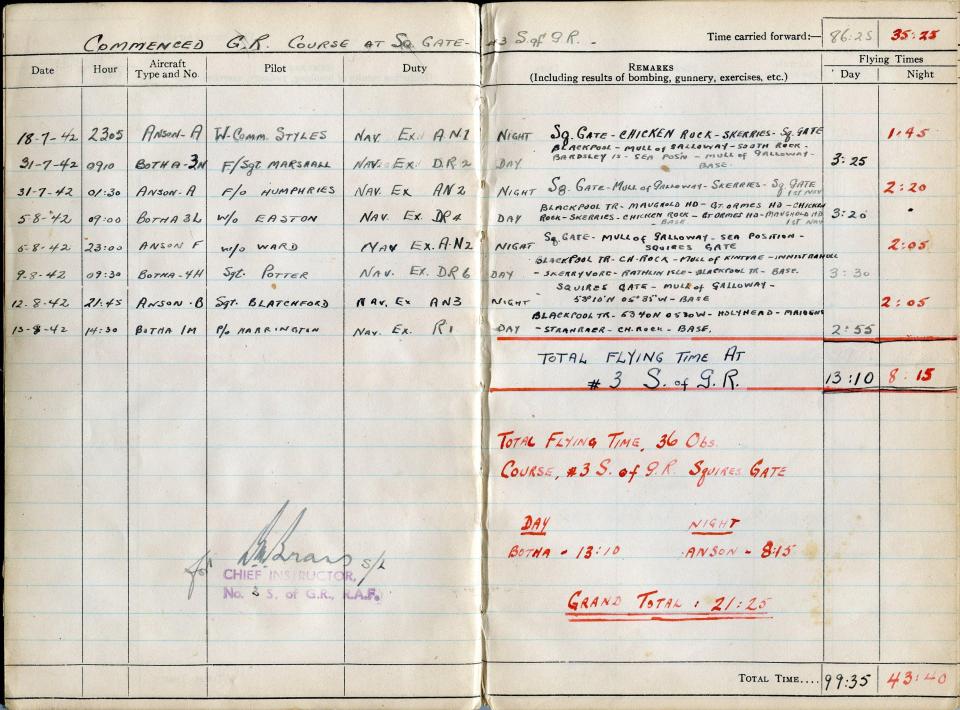 COMMENCED G.R. COURSE AT SQ. GATE - #3 S. of G.R. - Time carried forward:— 86:25 35:25
Date Hour Aircraft Type and No. Pilot Duty REMARKS (Including results of bombing, gunnery, exercises, etc.) Flying Times Day Night
18-7-42 2305 ANSON-A W-COMM. STYLES NAV. EX. A.N.1 NIGHT SQ. GATE - CHICKEN ROCK - SKERRIES - SQ. GATE 1:45
BLACKPOOL - MULL of GALLOWAY - SOUTH ROCK -
31-7-42 0910 BOTHA-3N F/SGT. MARSHALL NAV. EX. DR2 DAY BARDSLEY IS - SEA POSN - MULL of GALLOWAY - 3:25
BASE.
31-7-42 01:30 ANSON-A F/O HUMPHRIES NAV. EX AN2 NIGHT SQ. GATE - MULL of GALLOWAY - SKERRIES - SQ. GATE 2:20
1ST NAV
BLACKPOOL TR - MAUGHOLD HD - GT. ORMES HD - CHICKEN
5-8-42 09:00 BOTHA 3L W/O EASTON NAV. EX. DR4 DAY ROCK - SKERRIES - CHICKEN ROCK - GT. ORMES HD - MAUGHOLD HD 3:20
- BASE 1ST NAV
SQ. GATE - MULL of GALLOWAY - SEA POSITION -
6-8-42 23:00 ANSON F W/O WARD NAV EX. A.N2 NIGHT SQUIRES GATE 2:05
BLACKPOOL TR. - CH. ROCK - MULL of KINTYRE - INNISTRAHULL
9-8-42 09:30 BOTHA-4H SGT. POTTER NAV. EX. DR6 DAY - SKERRYVORE - RATHLIN ISLE - BLACKPOOL TR - BASE. 3:30
SQUIRES GATE - MULL of GALLOWAY -
12-8-42 21:45 ANSON-B SGT. BLATCHFORD NAV. EX AN3 NIGHT 53°10'N 05°35'W - BASE 2:05
BLACKPOOL TR - 5340N 0530W - HOLYHEAD -
13-8-42 14:30 BOTHA 1M P/O HARRINGTON NAV. EX. R1 DAY - STRANRAER - CH. ROCK - BASE. 2:55
TOTAL FLYING TIME AT
# 3 S. of G.R. 13:10 8:15
TOTAL FLYING TIME, 36 OBS.
COURSE, #3 S. of G.R. SQUIRES GATE
DAY NIGHT
BOTHA - 13:10 ANSON - 8:15
for S/L
CHIEF INSTRUCTOR,
No. 3 S. of G.R., R.A.F.
GRAND TOTAL : 21:25
TOTAL TIME.... 99:35 43:40